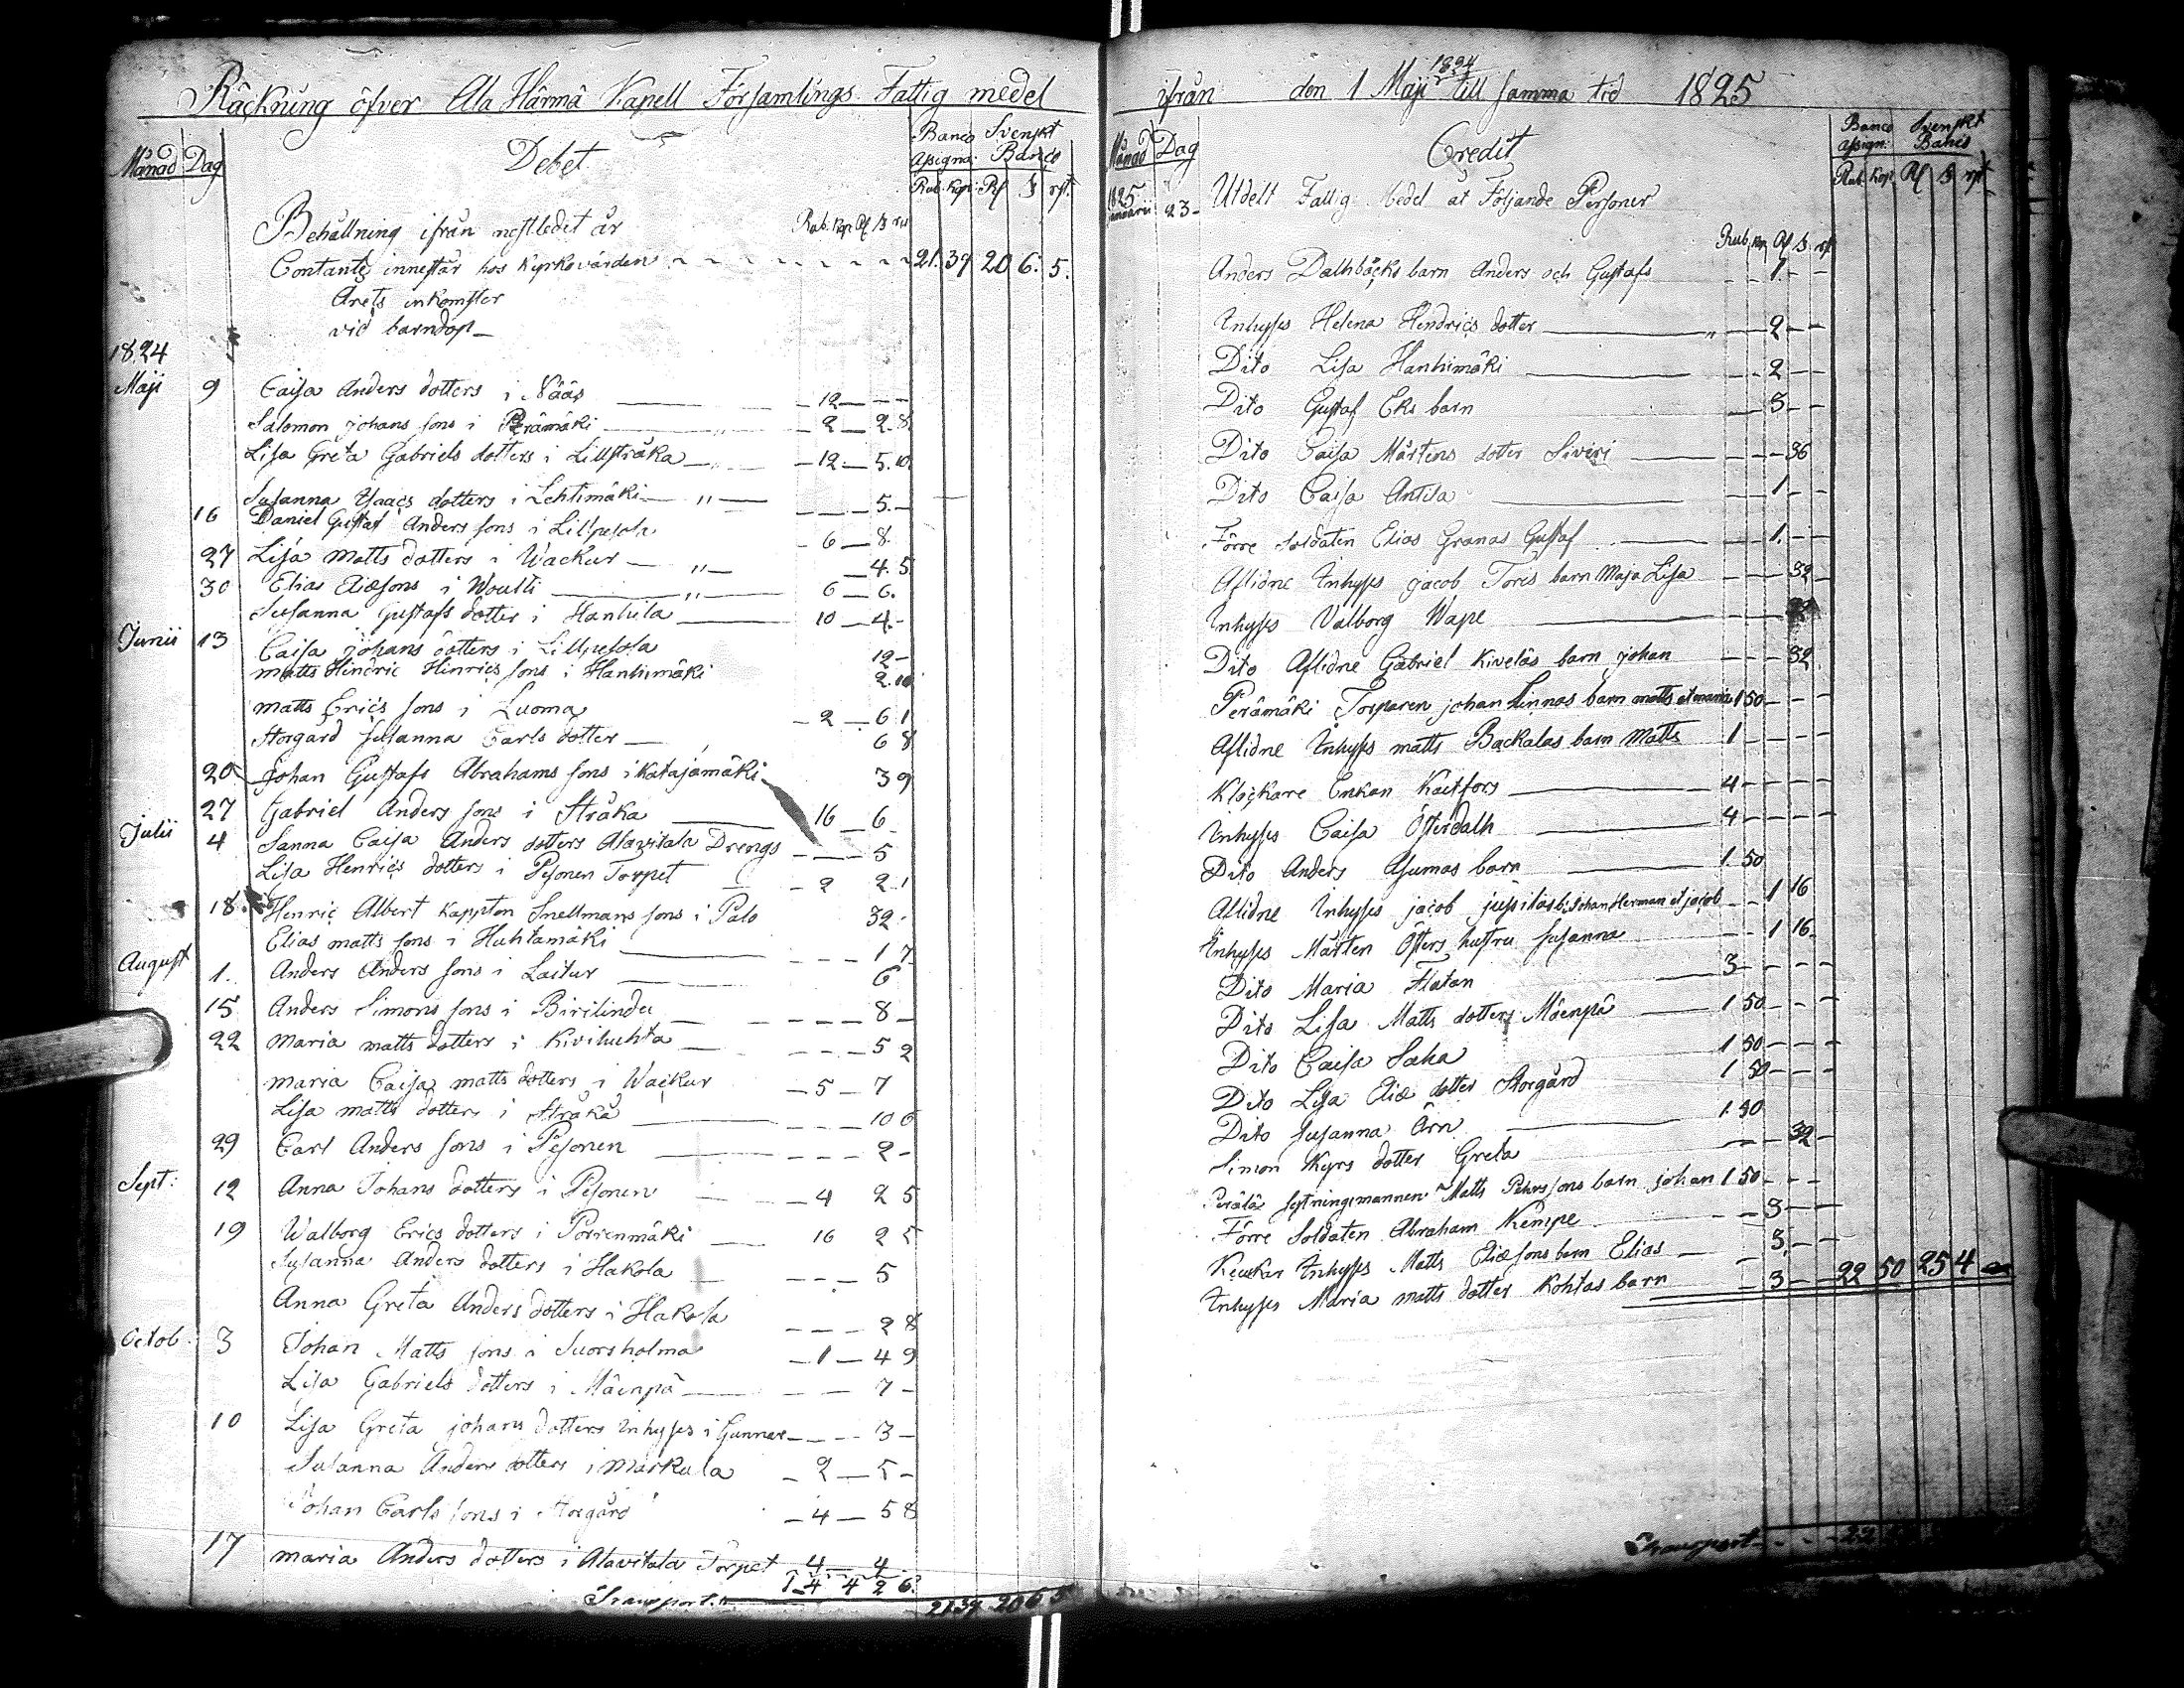 Räckning öfver Ala Härmä Kapell Församlings Fattig medel
Månad Dag Debet Banco Assigna: Svenskt Banco
Rub. Kop. Rd ß rst.
Behållning ifrån nestledit år Rub. Kop. Rd ß rst
Contante innestår hos Kyrkovärden 21. 39 20 6. 5.
Årets inkomster
vid barndop
1824
Maji 9 Caisa Anders dotters i Näås 12
Salomon Johans sons i Perämäki 2 2. 8.
Lisa Greta Gabriels dotters i Lillstråka 12 5. 10.
Susanna Isaacs dotters i Lehtimäki 5.
16 Daniel Gustaf Anders sons i Lillpesola 6 8.
27 Lisa Matts dotters i Wackur 4. 5
30 Elias Eliæsons i Woulti 6 6.
Susanna Gustafs dotter i Hanhila 10 4.
Junii 13 Caisa Johans dotters i Lillpesola 12
Matts Hindric Hinrics sons i Hanhimäki 2. 10
Matts Erics sons i Luoma 2 6 1
Storgård Susanna Carls dotter 6 8
20 Johan Gustafs Abrahams sons i Katajamäki 3 9
27 Gabriel Anders sons i Stråka 16 6
Julii 4 Sanna Caisa Anders dotters Alavitala Drengs 5
Lisa Henrics dotters i Pesonen Torpet 2 2. 1
18. Henric Albert Kappton Snellmans sons i Palo 32.
Elias Matts sons i Huhtamäki 1 7
August 1. Anders Anders sons i Laitur 6
15 Anders Simons sons i Birilinder 8
22 Maria Matts dotters i Kivihuhta 5 2
Maria Caisa Matts dotters i Wackur 5 7
Lisa Matts dotters i Stråka 10 6
29 Carl Anders sons i Pesonen 2
Sept: 12 Anna Johans dotters i Pesonen 4 2 5
19 Walborg Erics dotters i Porrenmäki 16 2 5
Susanna Anders dotters i Hakola 5
Anna Greta Anders dotters i Hakola 2 8
Octob. 3 Johan Matts sons i Suorsholma 1 4 9
Lisa Gabriels dotters i Mäenpä 7
10 Lisa Greta Johans dotters Inhyses i Gunnar 3
Susanna Anders dotters i Markula 2 5
Johan Carls sons i Storgård 4 5 8
17 Maria Anders dotters i Alavitala Torpet 4 4
1 4 4 2 6.
Transport. 21 39 20 6 5
ifrån den 1 Maji 1824 till samma tid 1825
Månad Dag Credit Banco Assign: Svenskt Banco
Rub. Kop Rd ß rst
1825 Januarii 23 Utdelt Fattig Medel åt Följande Personer
Rub. Kop Rd ß. rst
Anders Dalhbäcks barn Anders och Gustafs 1.
Inhyses Helena Hendrics dotter 2
Dito Lisa Hanhimäki 2
Dito Gustaf Eks barn 3
Dito Caisa Mårtens dotter Siviri 36
Dito Caisa Antila 1
Förre Soldaten Elias Granas Gustaf 1.
Aflidne Inhyses Jacob Toris barn Maja Lisa 32
Inhyses Valborg Wape 32
Dito Aflidne Gabriel Kiveläs barn Johan 32
Perämäki Torparen Johan Linnas barn Matts et Maria 1 50
Aflidne Inhyses Matts Backalas barn Matts 1
Klockare Enkan Kaitfors 4
Inhyses Caisa Österdalh 4
Dito Anders Asumas barn 1 50
Aflidne Inhyses Jacob Jussilas b: Johan Herman et Jacob 1 16
Inhyses Mårten Östers hustru Susanna 1 16
Dito Maria Flatan 3
Dito Lisa Matts dotters Mäenpä 1 50
Dito Caisa Saha 1 50
Dito Lisa Eliæ dotter Storgård 1 50
Dito Susanna Örn 1. 50
Simon Kyrs dotter Greta 32
Perälä sytningsmannen Matts Pehrs sons barn Johan 1 50
Förre Soldaten Abraham Kempe 3
Keuckar Inhyses Matts Eliæsons barn Elias 3.
Inhyses Maria Matts dotter Kohtas barn 3 22 50 25 4
Transport 22